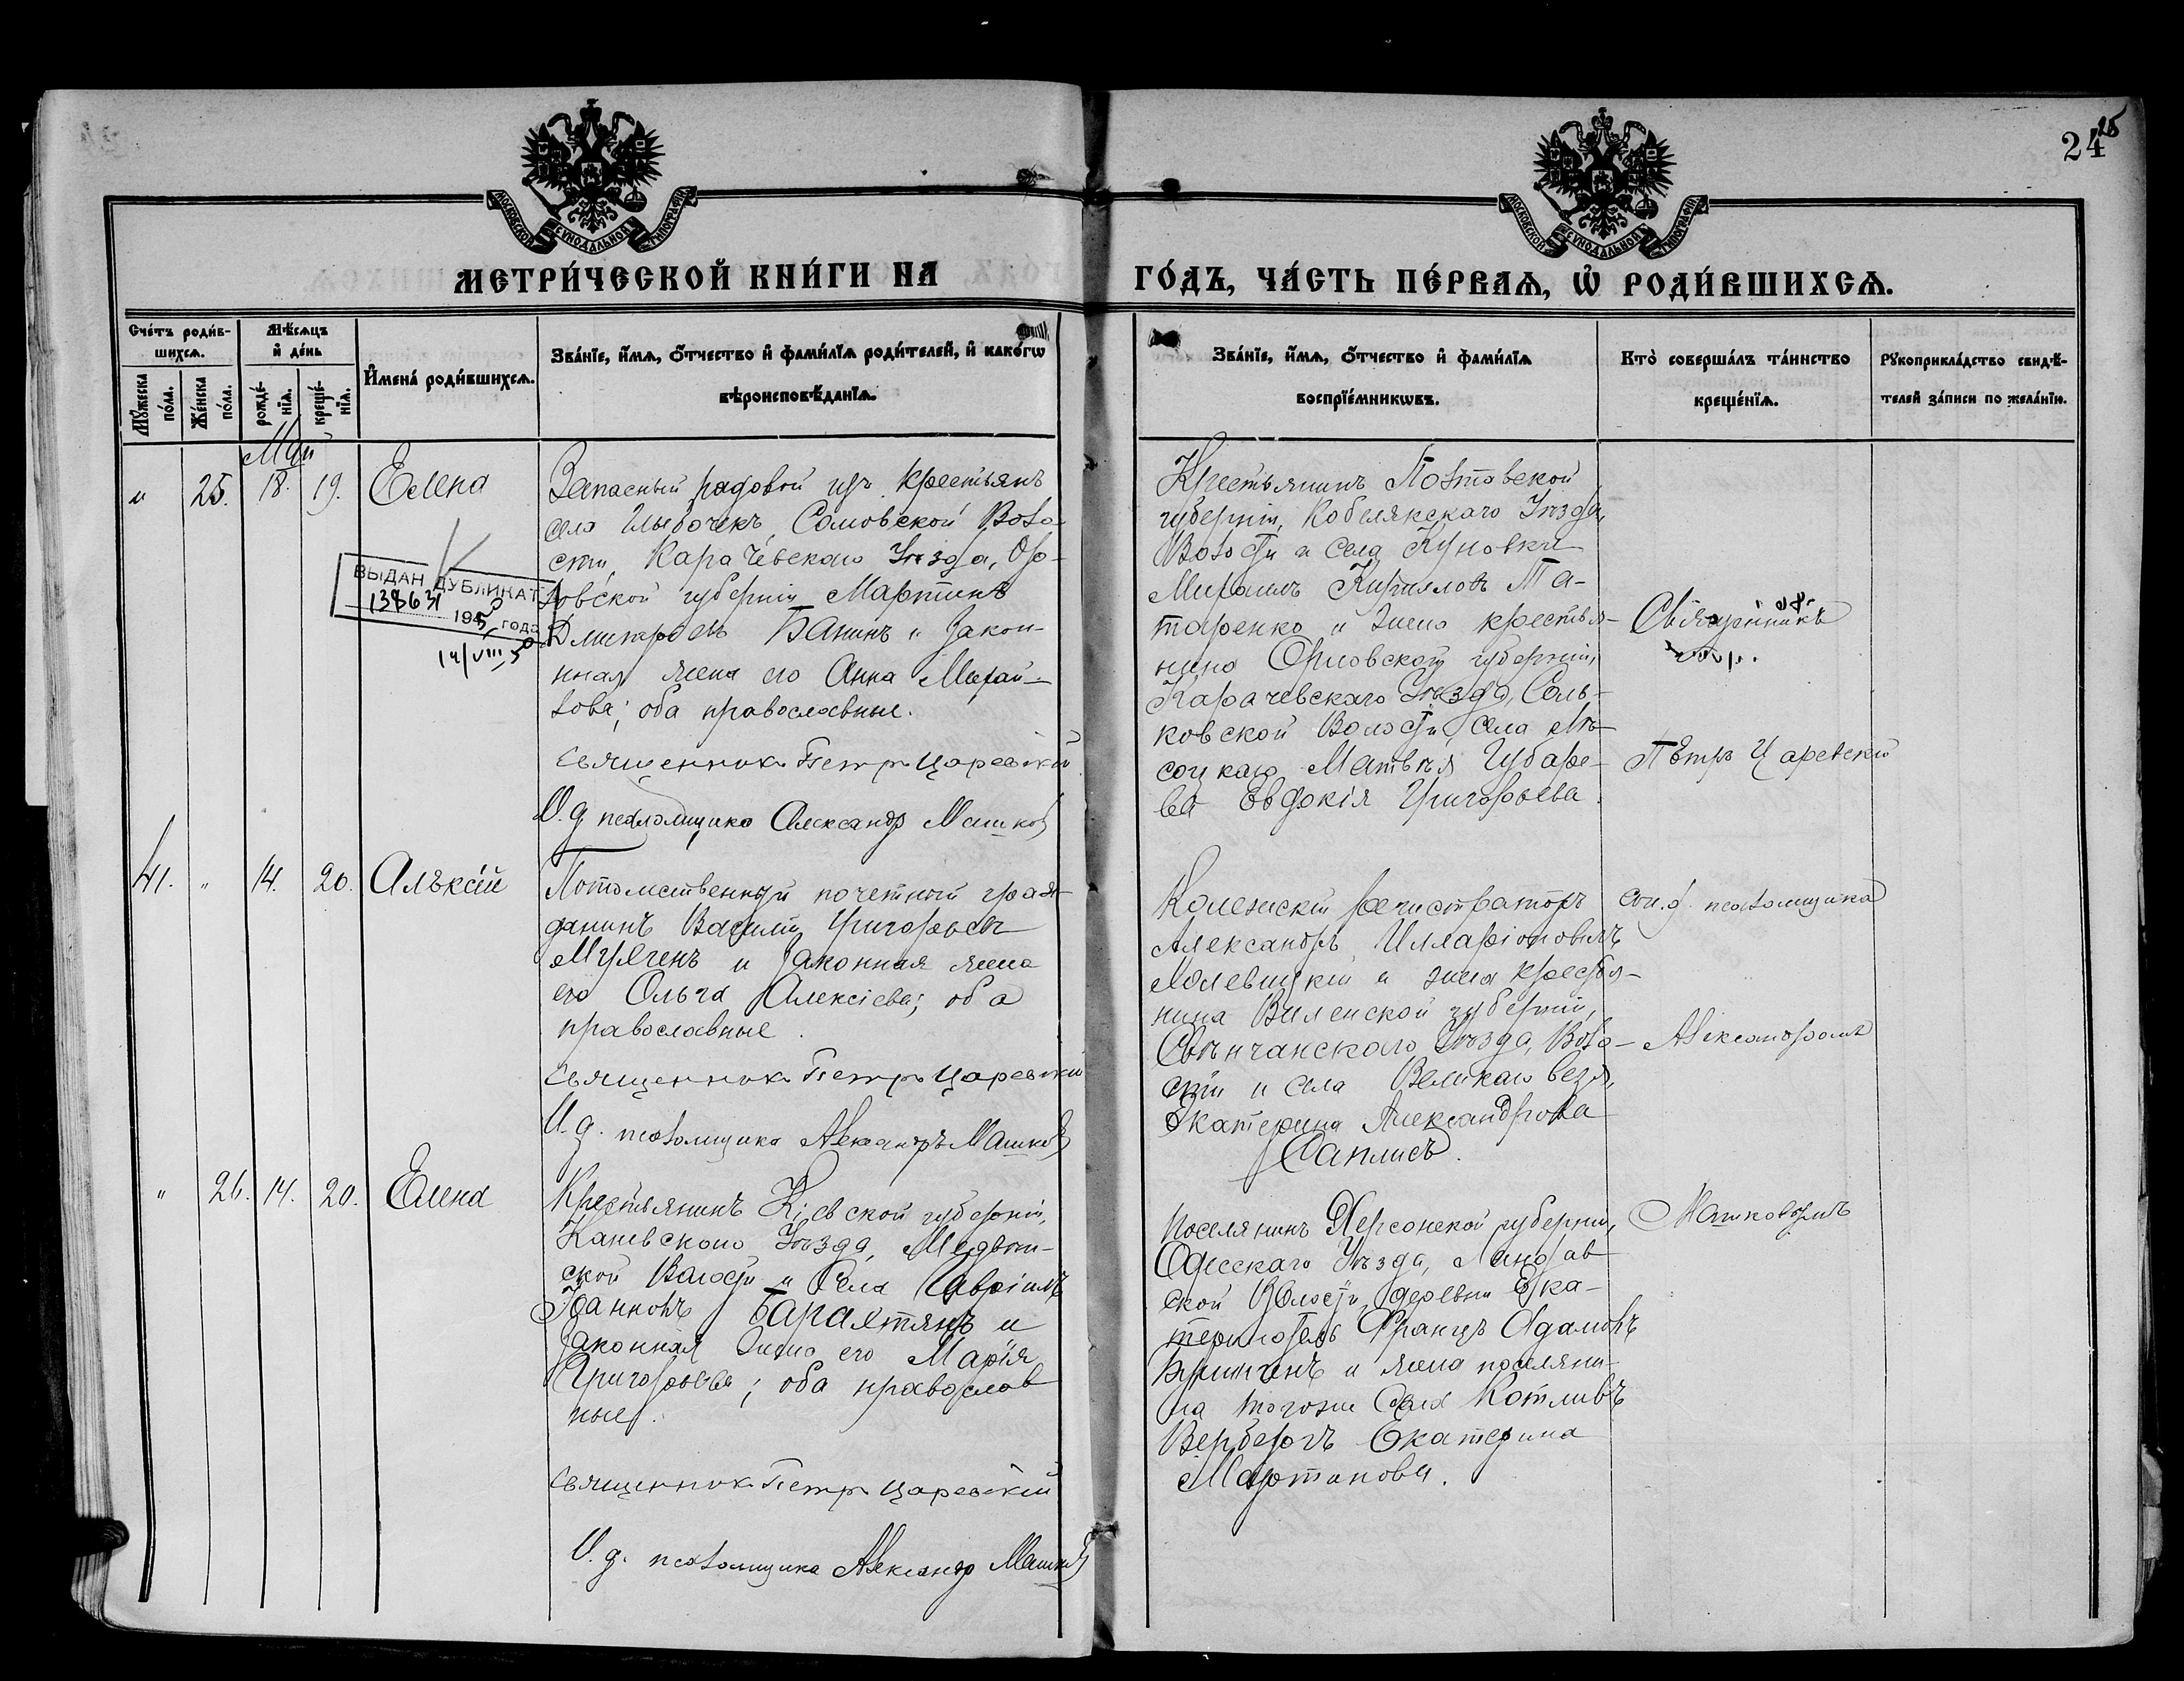 24
25
МОСКОВСКОЙ СѴНОДАЛЬНОЙ ТИПОГРАФІИ
МОСКОВСКОЙ СѴНОДАЛЬНОЙ ТИПОГРАФІИ
МЕТРИ́ЧЕСКОЙ КНИ́ГИ НА
ГО́ДЪ, ЧА́СТЬ ПЕ́РВАѦ, Ѡ҆ РОДИ́ВШИХСѦ.
Сче́тъ роди́в-
шихсѧ.
Мꙋ́жеска по́ла.
Же́нска по́ла.
Мѣ́сѧцъ и҆ де́нь
рожде́-
нїѧ.
креще́-
нїѧ.
И҆мена̀ роди́вшихсѧ.
Зва́нїе, и҆́мѧ, ѻ҆́тчество и҆ фами́лїѧ роди́телей, и҆ како́гѡ
вѣроисповѣ́данїѧ.
Зва́нїе, и҆́мѧ, ѻ҆́тчество и҆ фами́лїѧ
воспрїе́мникѡвъ.
Кто̀ соверша́лъ та́инство
креще́нїѧ.
Рꙋкоприкла́дство свидѣ́-
телей за́писи по жела́нїю.
Май
" 25. 18. 19. Елена
Запасный рядовой изъ крестьянъ
села Глыбочекъ, Воло-
сти, Карачевскаго Уѣзда, Ор-
ловской губерніи Мартинъ
Дмитріевъ Банинъ и закон-
ная жена его Анна Михай-
лова; оба православные.
Священникъ Петръ Царевскій
И. д. псаломщика Александръ Машковъ
ВЫДАН ДУБЛИКАТ
138631
195 года
14/VIII
Крестьянинъ Полтавской
губерніи, Кобелякскаго Уѣзда,
Волости и Села Куновки
Кирилловъ Та-
таренко и жена крестья-
нина Орловской губерніи,
Карачевскаго Уѣзда,
ковской Волости, села
Матвѣя Губаре-
ва Евдокія Григорьева.
Священникъ
Петръ Царевскій
41. " 14. 20. Алексѣй
Потомственный почетный граж-
данинъ Василій Григорьевъ
и законная жена
его Ольга Алексіева; оба
православные.
Священникъ Петръ Царевскій
И. д. псаломщика Александръ Машковъ
Колежскій регистраторъ
Александръ Илларіоновичъ
и жена крестья-
нина Виленской губерніи,
Свѣнчанскаго Уѣзда, Воло-
сти и села
Екатерина Александрова
съ и. д. псаломщика
Александромъ
Машковымъ
" 26. 14. 20. Елена
Крестьянинъ Кіевской губерніи,
Каневскаго Уѣзда, Медвин-
ской Волости и Села Гавріилъ
Іоанновъ и
законная жена его Марія
Григорьева; оба православ
ные.
Священникъ Петръ Царевскій
И. д. псаломщика Александръ Машковъ
Поселянинъ Херсонской губерніи,
Одесскаго Уѣзда, Ландав
ской Волости, деревни Ека-
Францъ Адамовъ
и жена поселяни-
на тогоже Села
Екатерина
Мартинова.